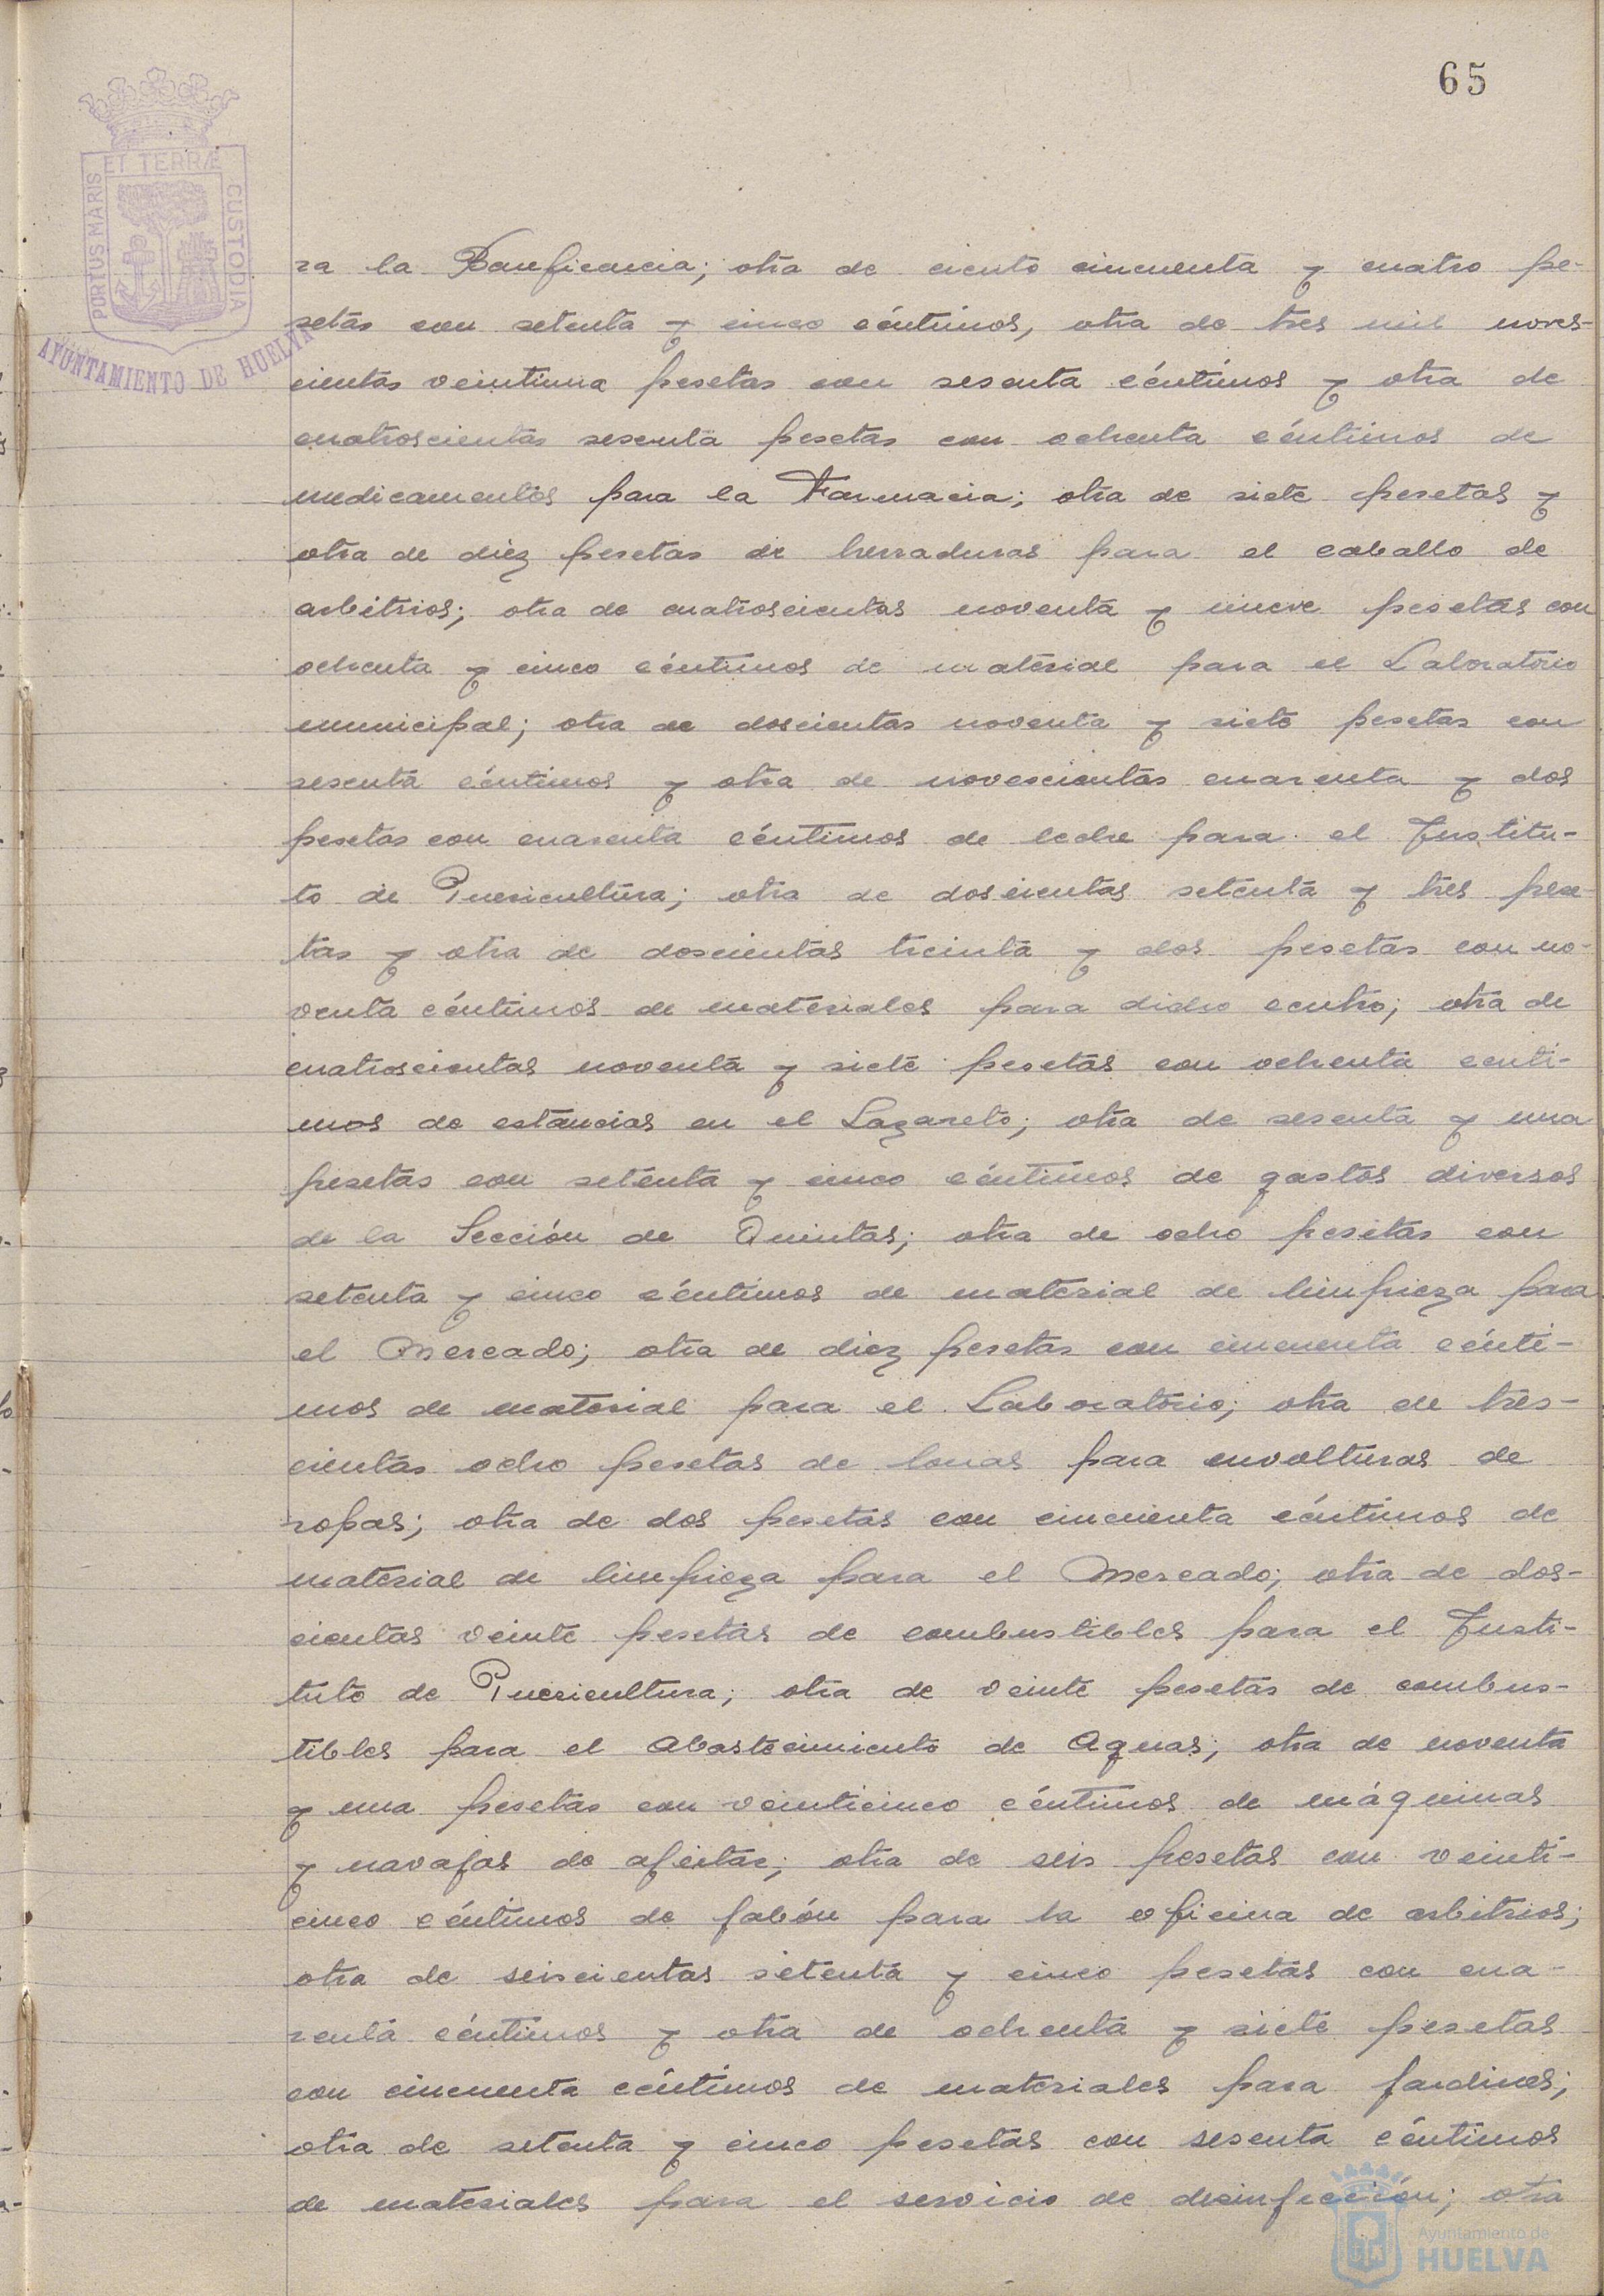 65
PORTUS MARIS ET TERRÆ CUSTODIA
AYUNTAMIENTO DE HUELVA
ra la Beneficencia; otra de ciento cincuenta y cuatro pe-
setas con setenta y cinco céntimos, otra de tres mil noves-
cientas veintiuna pesetas con sesenta céntimos y otra de
cuatroscientas sesenta pesetas con ochenta céntimos de
medicamentos para la Farmacia; otra de siete pesetas y
otra de diez pesetas de herraduras para el caballo de
arbitrios; otra de cuatroscientas noventa y nueve pesetas con
ochenta y cinco céntimos de material para el Laboratorio
municipal; otra de doscientas noventa y siete pesetas con
sesenta céntimos y otra de novescientas cuarenta y dos
pesetas con cuarenta céntimos de leche para el Institu-
to de Puericultura; otra de doscientas setenta y tres pese-
tas y otra de doscientas treinta y dos pesetas con no-
venta céntimos de materiales para dicho centro; otra de
cuatroscientas noventa y siete pesetas con ochenta centi-
mos de estancias en el Lazareto; otra de sesenta y una
pesetas con setenta y cinco céntimos de gastos diversos
de la Sección de Quintas; otra de ocho pesetas con
setenta y cinco céntimos de material de limpieza para
el Mercado; otra de diez pesetas con cincuenta cénti-
mos de material para el Laboratorio; otra de tres-
cientas ocho pesetas de lonas para envolturas de
ropas; otra de dos pesetas con cincuenta céntimos de
material de limpieza para el Mercado; otra de dos-
cientas veinte pesetas de combustibles para el Insti-
tuto de Puericultura; otra de veinte pesetas de combus-
tibles para el Abastecimiento de Aguas; otra de noventa
y una pesetas con veinticinco céntimos de máquinas
y navajas de afeitar; otra de seis pesetas con veinti-
cinco céntimos de jabón para la oficina de arbitrios;
otra de seiscientas setenta y cinco pesetas con cua-
renta céntimos y otra de ochenta y siete pesetas
con cincuenta céntimos de materiales para jardines;
otra de setenta y cinco pesetas con sesenta céntimos
de materiales para el servicio de desinfección; otra
Ayuntamiento de
HUELVA